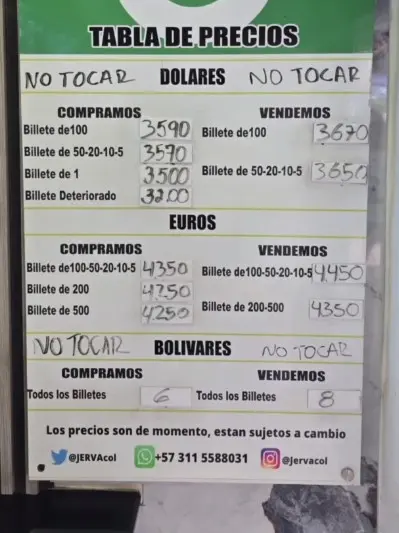 TABLA DE PRECIOS
NO TOCAR DOLARES NO TOCAR
COMPRAMOS VENDEMOS
Billete de100 3590 Billete de100 3670
Billete de 50-20-10-5 3570 Billete de 50-20-10-5 3650
Billete de 1 3500
Billete Deteriorado 3200
EUROS
COMPRAMOS VENDEMOS
Billete de100-50-20-10-5 4350 Billete de100-50-20-10-5 4450
Billete de 200 4250
Billete de 500 4250 Billete de 200-500 4350
NO TOCAR BOLIVARES NO TOCAR
COMPRAMOS VENDEMOS
Todos los Billetes 6 Todos los Billetes 8
Los precios son de momento, estan sujetos a cambio
@JERVAcol +57 311 5588031 @Jervacol